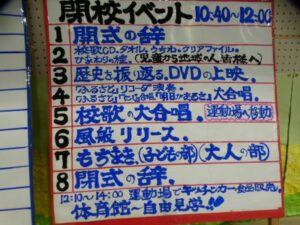 閉校イベント 10:40~12:00
1 開式の辞
2 校歌CD、タオル、うちわ、クリアファイル。
ひまわりの種。(児童から地域の人、皆様へ)
3 歴史を振り返る。DVDの上映。
4 「ふるさと」リコーダー演奏。
「ふるさと」「明日があるさ」大合唱
5 校歌の大合唱。運動場へ移動
6 風船リリース。
7 もちまき。(子どもの部)(大人の部)
8 閉式の辞。
12:10~14:00 運動場でキッチンカー
体育館~自由見学!!